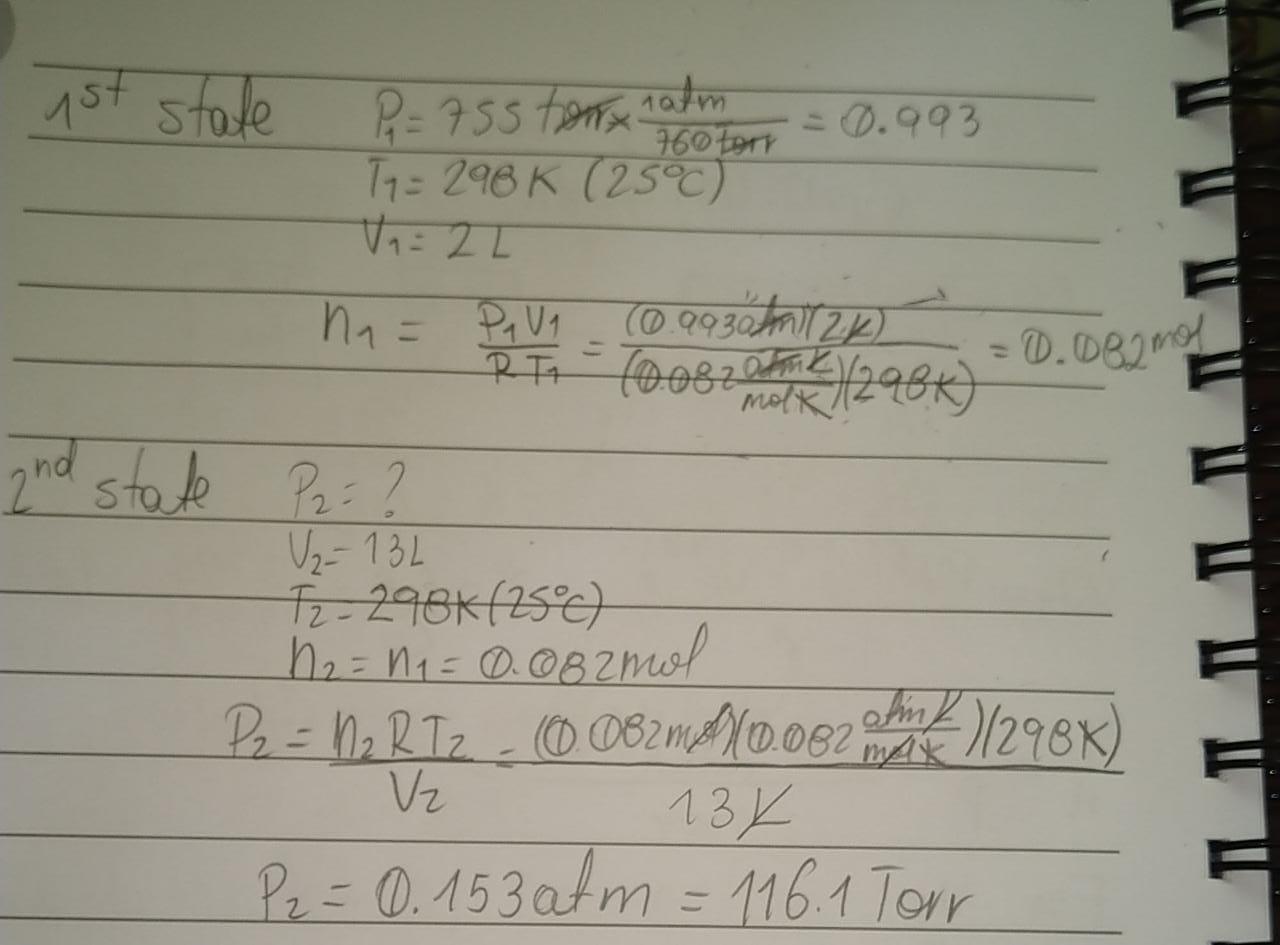 1st state P₁= 755 torr x 1atm/760 torr = 0.993
T₁= 298K (25°C)
V₁= 2 L
n₁ = P₁V₁/RT₁ = (0.993atm)(2L)/(0.082 atmL/molK)(298K) = 0.082mol
2nd state P₂= ?
V₂= 13L
T₂= 298K (25°C)
n₂ = n₁ = 0.082mol
P₂ = n₂RT₂/V₂ = (0.082mol)(0.082 atmL/molK)(298K)/13L
P₂ = 0.153atm = 116.1 Torr